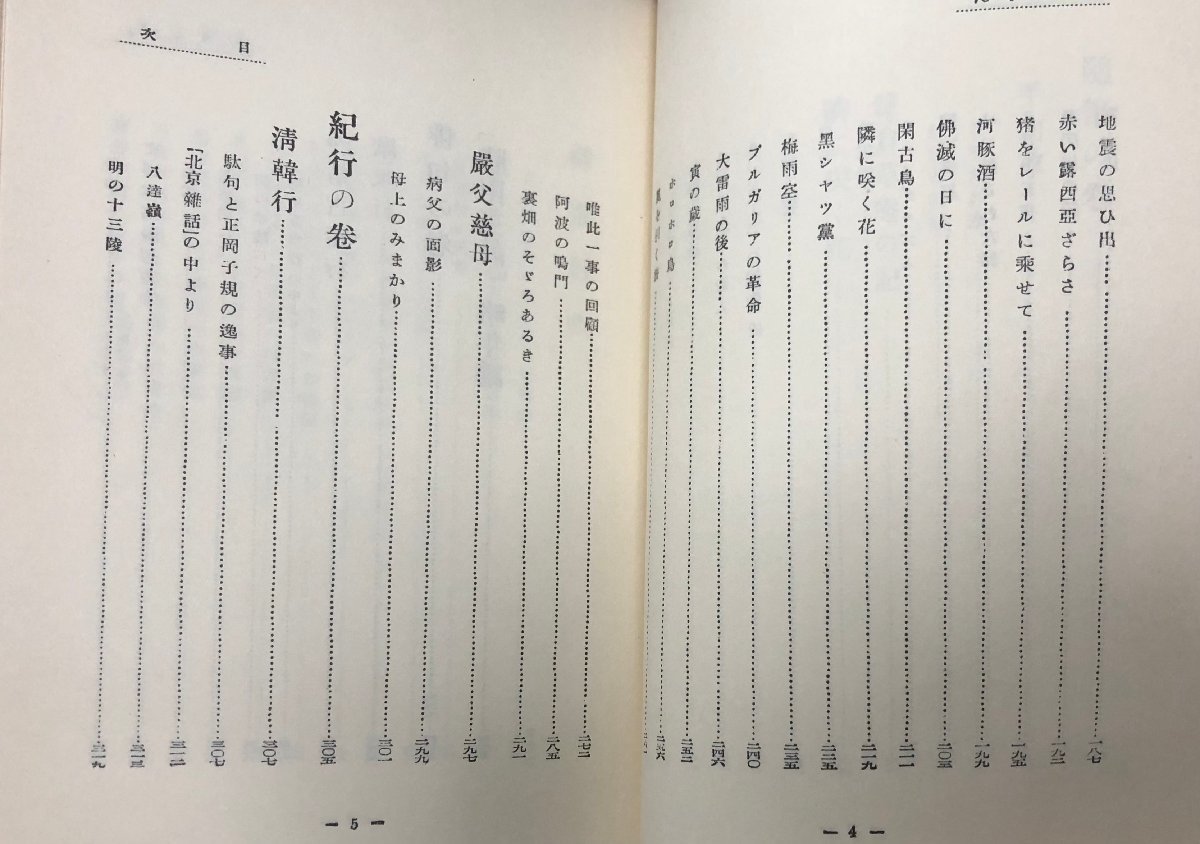 地震の思ひ出……一八七
赤い露西亞ざらさ……一九二
猪をレールに乘せて……一九五
河豚酒……一九九
佛滅の日に……二〇三
閑古鳥……二一一
隣に咲く花……二一九
黑シャツ黨……二二五
梅雨空……二三五
ブルガリアの革命……二四〇
大雷雨の後……二四六
寅の歲……二五二
ホロホロ鳥……二五六
— 4 —
目次
唯此一事の回顧……二七二
阿波の鳴門……二八五
裏畑のそゞろあるき……二九一
嚴父慈母……二九七
病父の面影……二九九
母上のみまかり……三〇一
紀行の卷……三〇五
淸韓行……三〇七
駄句と正岡子規の逸事……三〇七
「北京雜話」の中より……三一二
八達嶺……三一三
明の十三陵……三一九
— 5 —